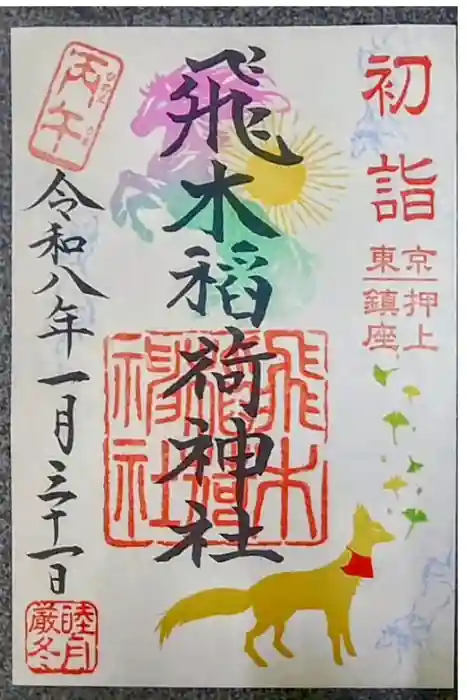 初詣
東京押上
鎮座
飛木稲荷神社
飛木稲荷神社
丙午
令和八年一月三十一日
睦月
厳冬